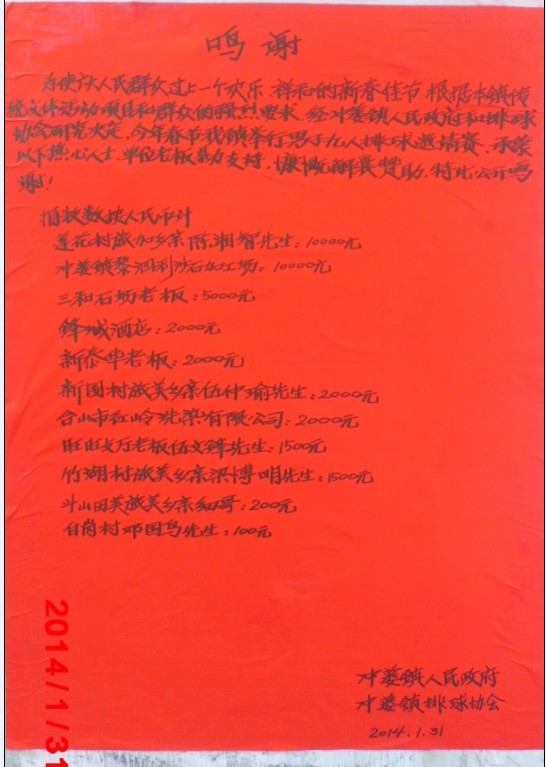 鸣谢
为使广大人民群众过上一个欢乐、祥和的新春佳节,根据本镇传
统文体活动项目和群众的强烈要求,经冲蒌镇人民政府和排球
协会研究决定,今年春节我镇举行男子九人排球邀请赛,承蒙
以下热心人士、单位老板鼎力支持,慷慨解囊赞助,特此公开鸣
谢!
捐款数按人民币计
莲花村旅加乡亲陈湘智先生:10000元
冲蒌镇黎洞利沙石加工场:10000元
三和石场老板:5000元
锋城酒店:2000元
新泰华老板:2000元
新围村旅美乡亲伍仲瑜先生:2000元
台山市红岭洗染有限公司:2000元
旺旺大厅老板伍文锋先生:1500元
竹湖村旅美乡亲梁博明先生:1500元
斗山田美旅美乡亲细哥:200元
白岗村邓国鸟先生:100元
冲蒌镇人民政府
冲蒌镇排球协会
2014.1.31
2014/1/31